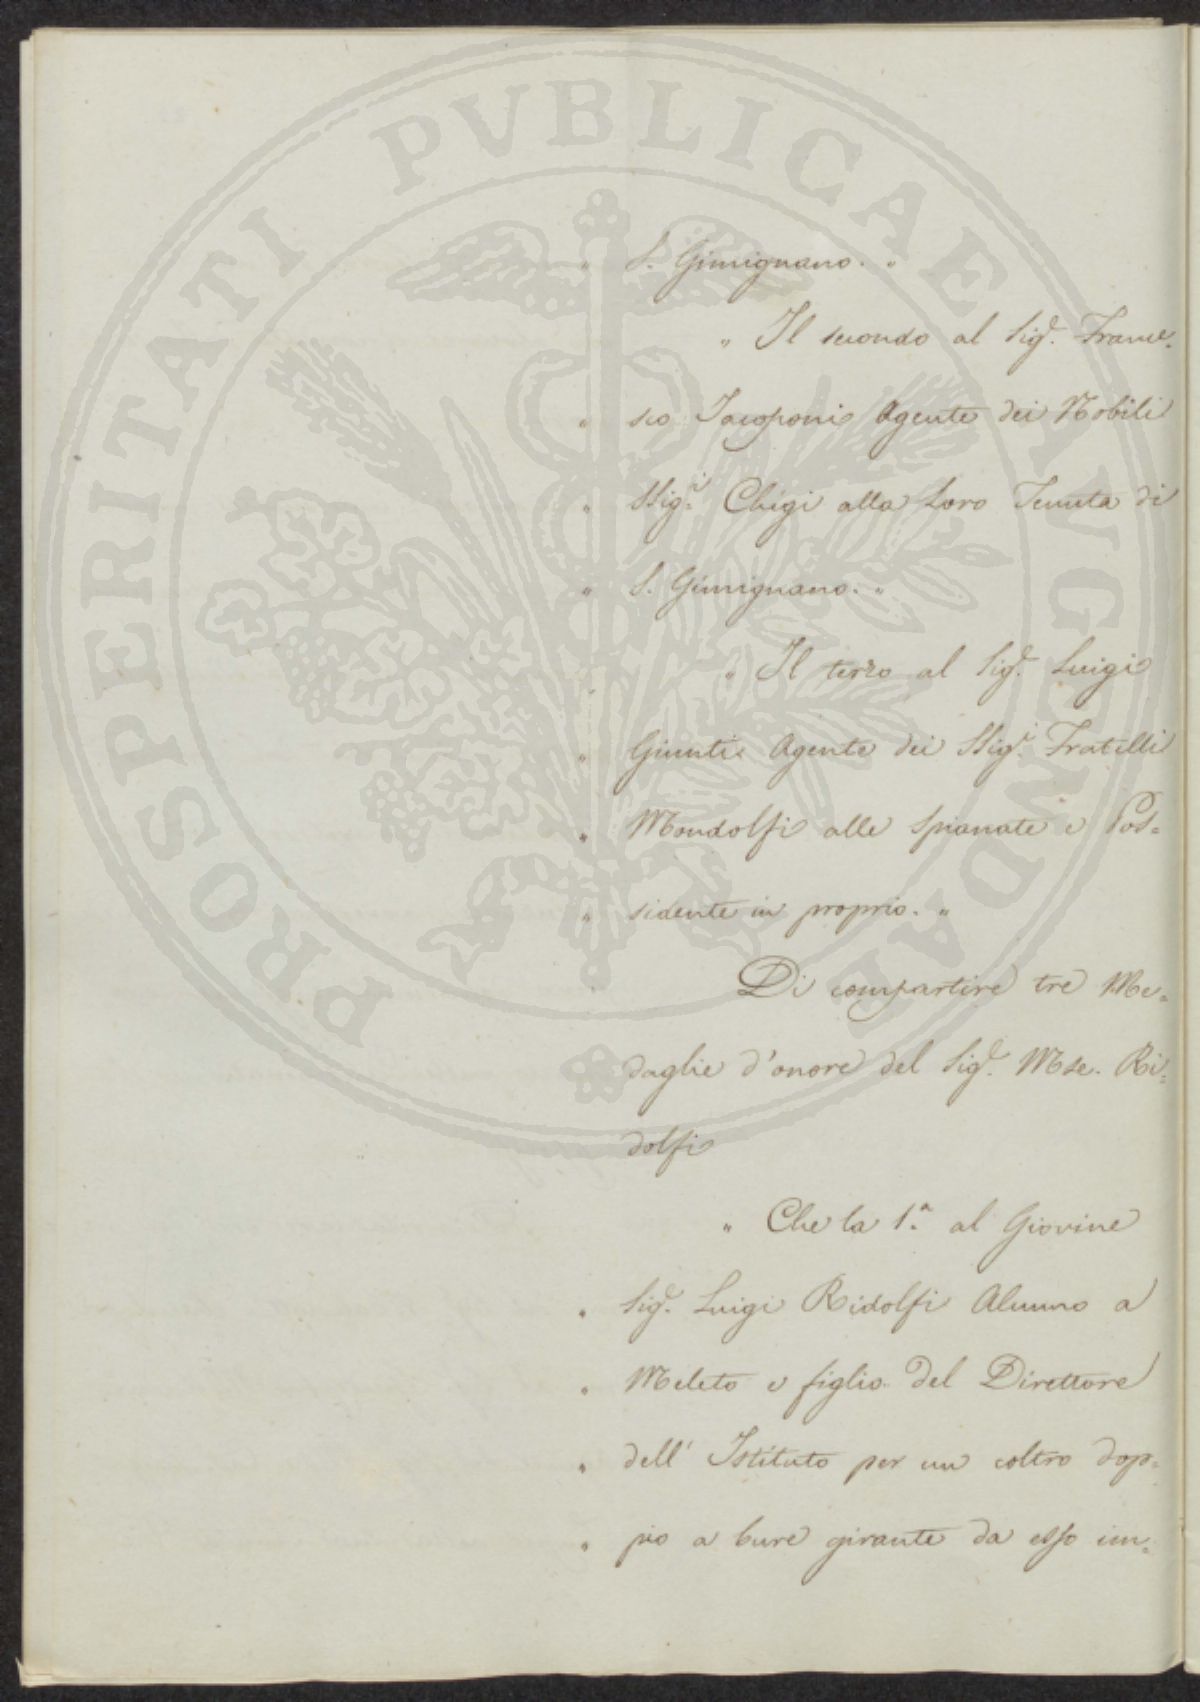 PROSPERITATI PVBLICAE AVGENDAE
" S. Gimignano. "
" Il secondo al Sig.r France-
" sco Jacoponi Agente dei Nobili
" SSig.i Chigi alla Loro Tenuta di
" S. Gimignano. "
" " Il terzo al Sig.r Luigi
" Giunti Agente dei SSig.i Fratelli
" Mondolfi alle Spianate e Pos=
" sidente in proprio. "
Di compartire tre Me=
daglie d'onore del Sig.r Mse. Ri=
dolfi
" Che la 1.a al Giovine
" Sig.r Luigi Ridolfi Alunno a
" Meleto e figlio del Direttore
" dell' Istituto per un coltro dop=
" pio a bure girante da esso im=